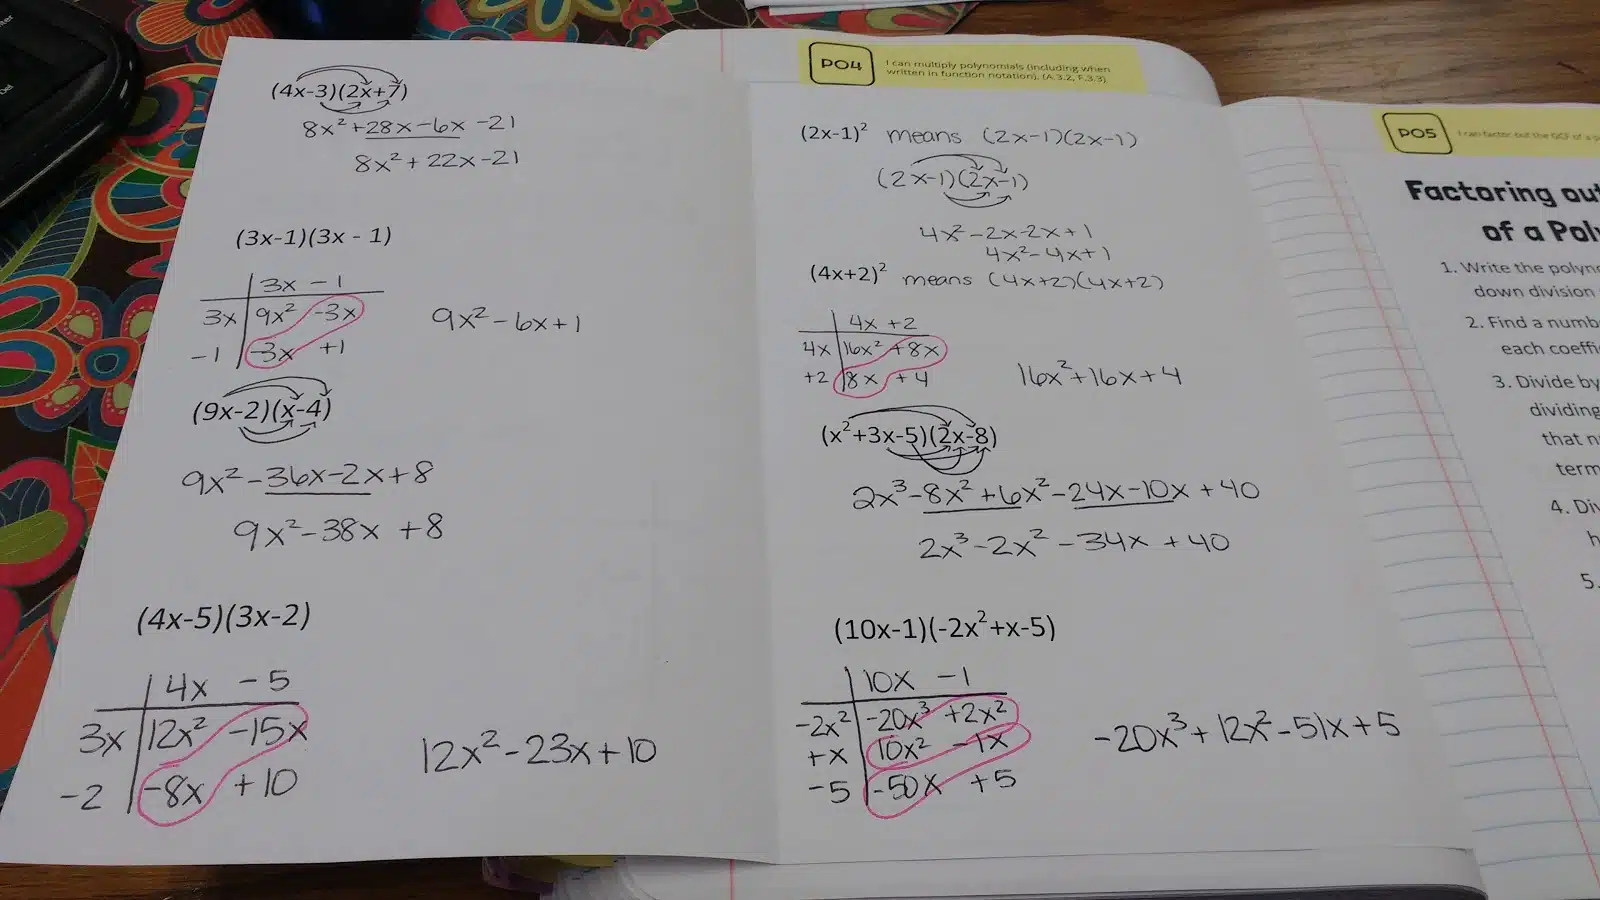 (4x-3)(2x+7)
8x²+28x-6x-21
8x²+22x-21
(3x-1)(3x - 1)
3x -1
3x 9x² -3x
-1 -3x +1
9x²-6x+1
(9x-2)(x-4)
9x²-36x-2x+8
9x²-38x+8
(4x-5)(3x-2)
4x -5
3x 12x² -15x
-2 -8x +10
12x²-23x+10
PO4
I can multiply polynomials (including when
written in function notation). (A.3.2, F.3.3)
(2x-1)² means (2x-1)(2x-1)
(2x-1)(2x-1)
4x²-2x-2x+1
4x²-4x+1
(4x+2)² means (4x+2)(4x+2)
4x +2
4x 16x² +8x
+2 8x +4
16x²+16x+4
(x²+3x-5)(2x-8)
2x³-8x²+6x²-24x-10x+40
2x³-2x²-34x+40
(10x-1)(-2x²+x-5)
10x -1
-2x² -20x³ +2x²
+x 10x² -1x
-5 -50x +5
-20x³+12x²-51x+5
PO5
I can factor out the GCF of a
Factoring out
of a
1. Write the
down division
2. Find a
each
3. Divide by
dividing
that
term
4.
5.